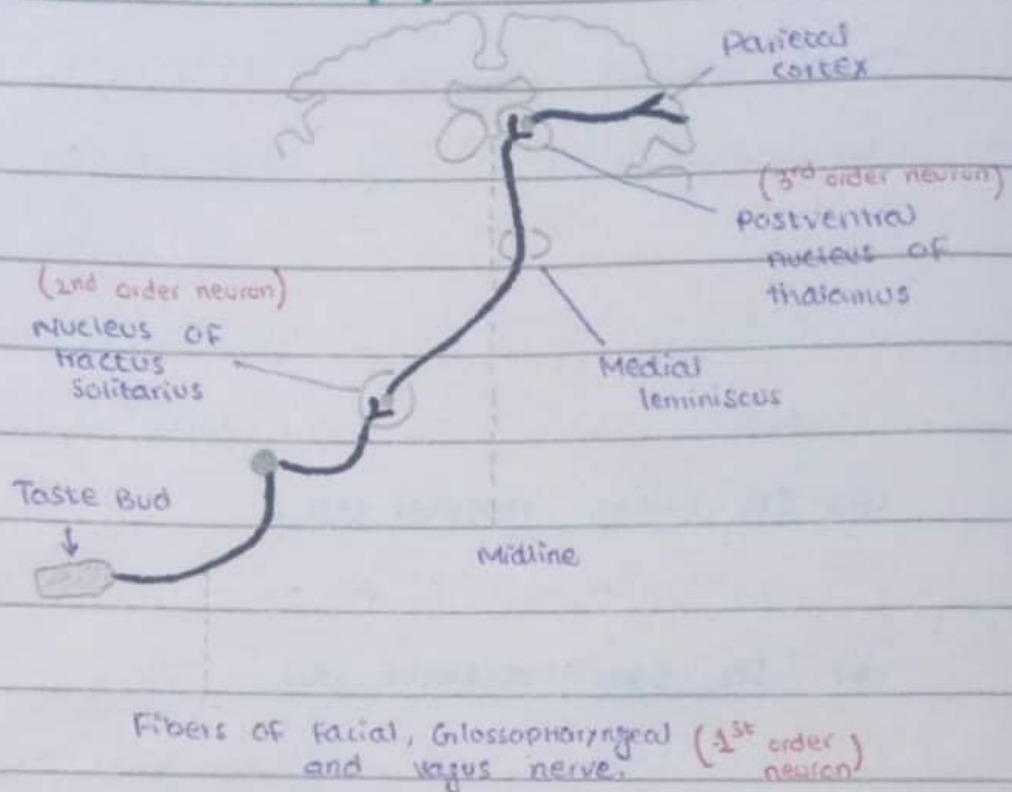 Parietal
cortex
(3rd order neuron)
Postventral
nucleus of
thalamus
(2nd order neuron)
Nucleus of
tractus
Solitarius
Medial
leminiscus
Taste Bud
Midline
Fibers of Facial, Glossopharyngeal (1st order
and vagus nerve. neuron)